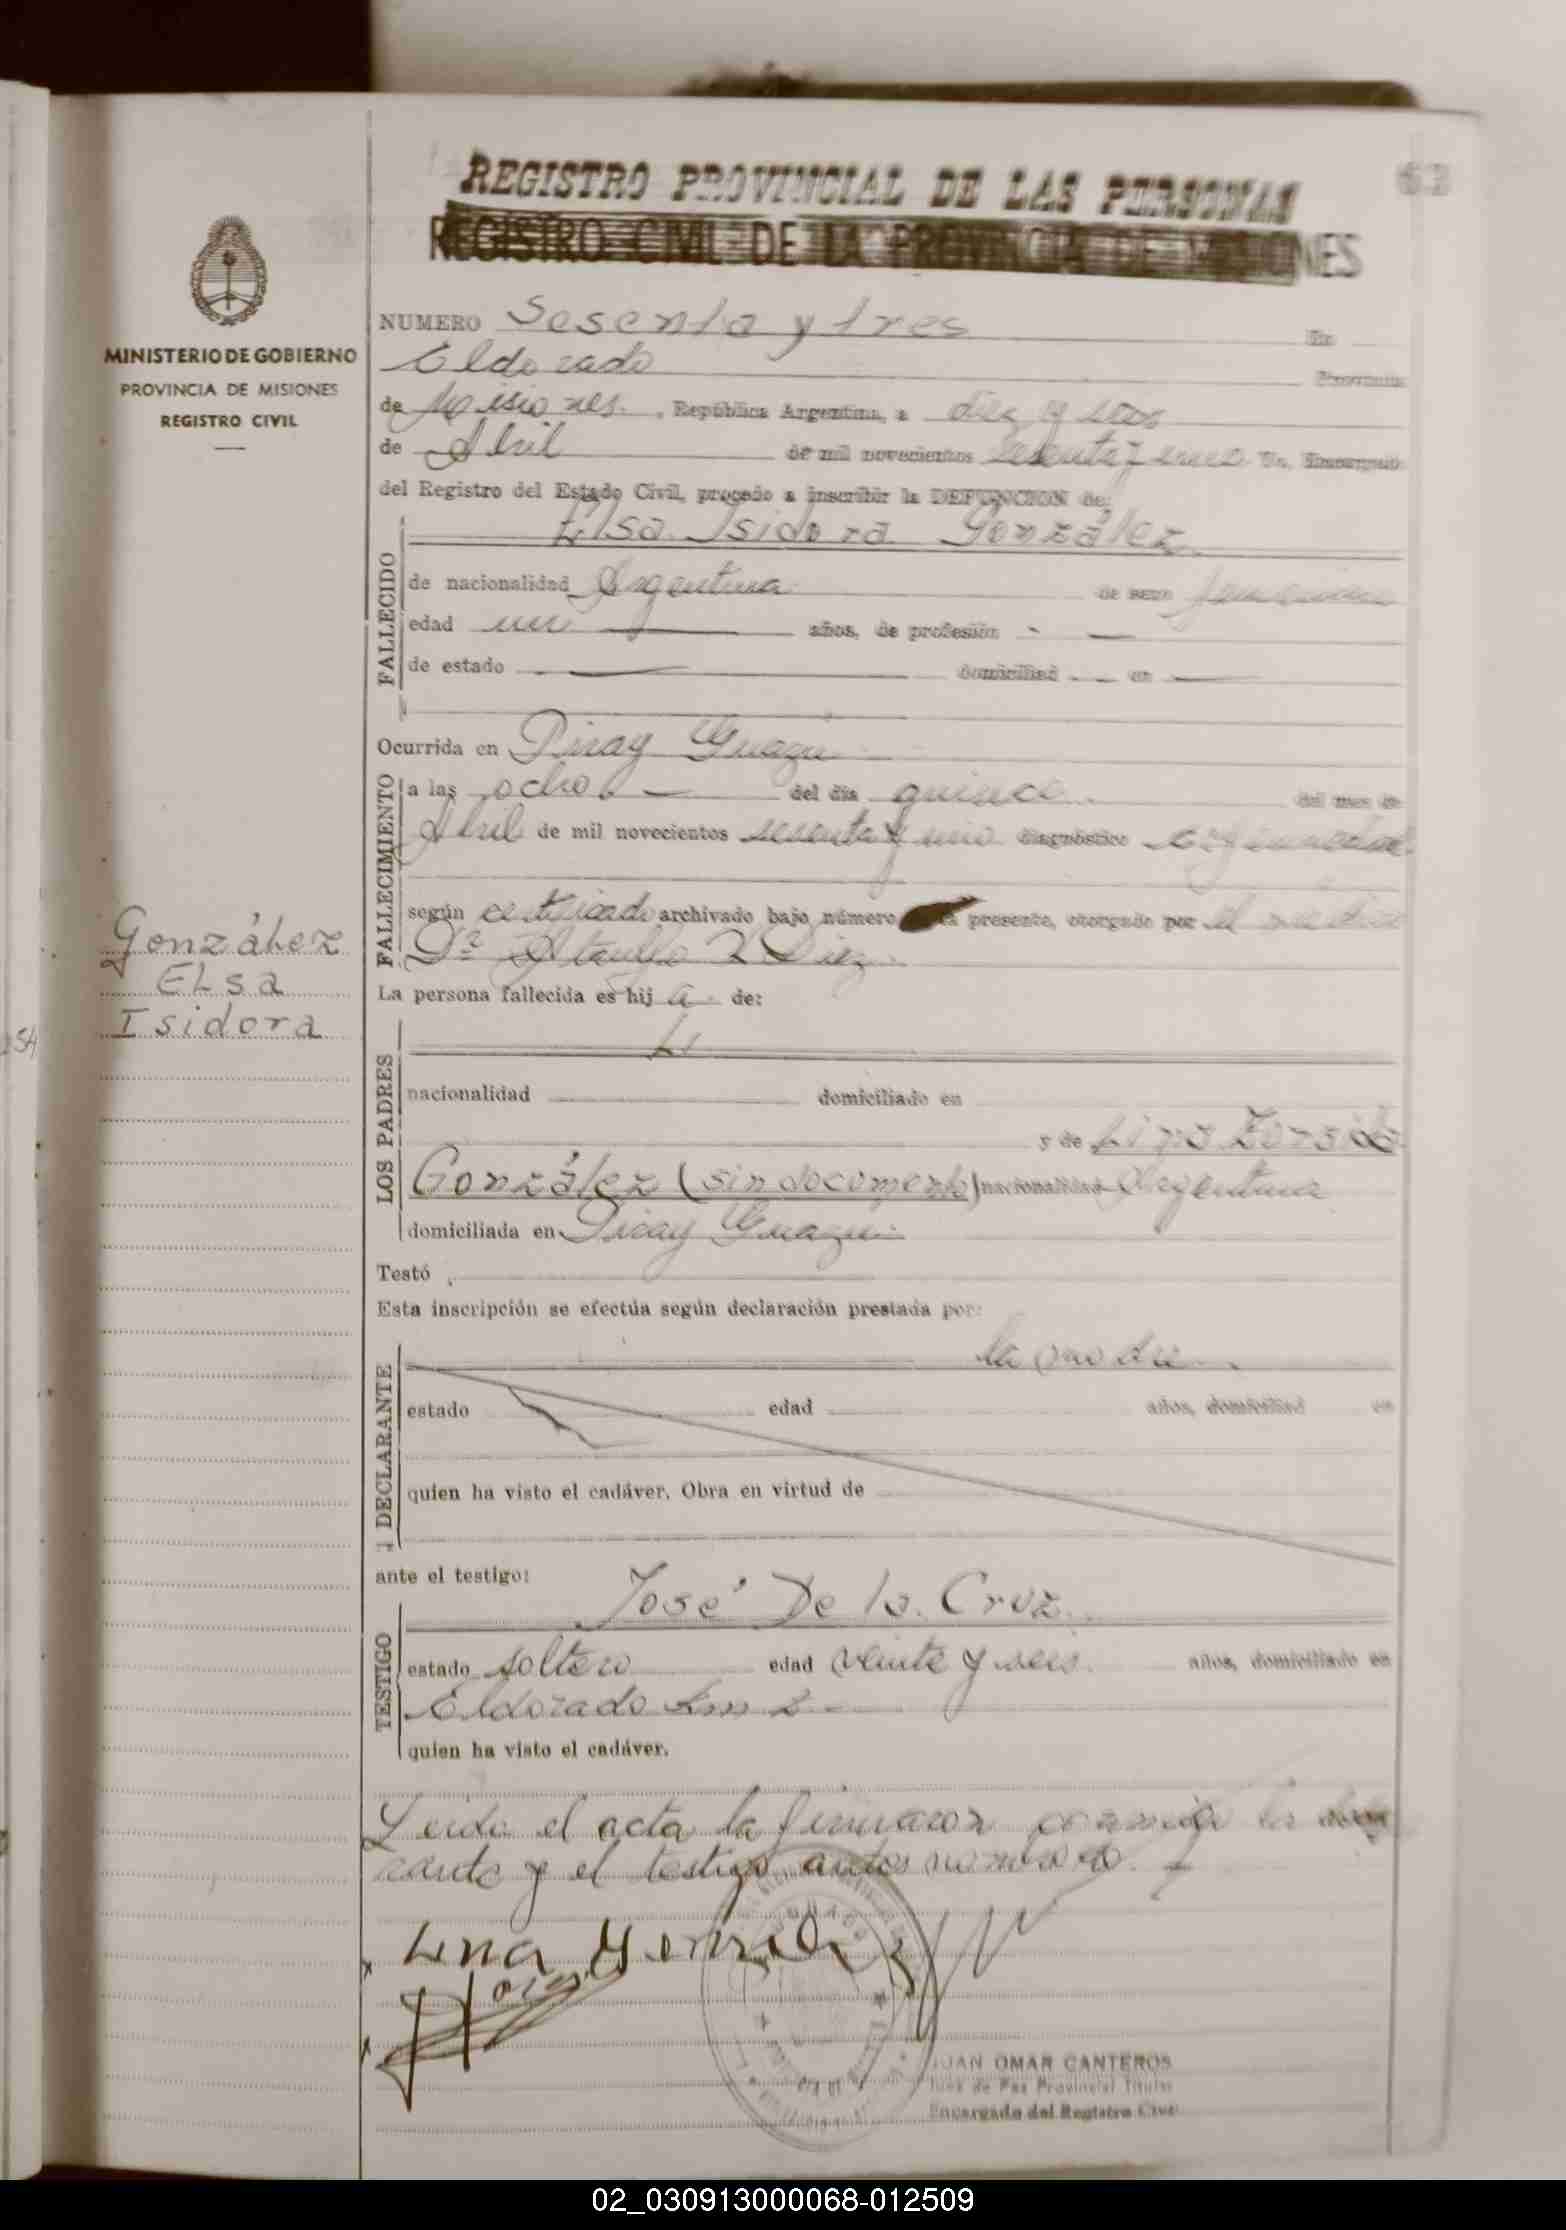 63
REGISTRO PROVINCIAL DE LAS PERSONAS
REGISTRO CIVIL DE LA PROVINCIA DE MISIONES
MINISTERIO DE GOBIERNO
PROVINCIA DE MISIONES
REGISTRO CIVIL
González
Elsa
Isidora
NUMERO Sesenta y tres En
Eldorado Provincia
de Misiones. , República Argentina, a diez y seis
de Abril de mil novecientos sesenta y uno Yo, Encargado
del Registro del Estado Civil, procedo a inscribir la DEFUNCION de:
FALLECIDO
Elsa Isidora González
de nacionalidad Argentina de sexo femenino
edad un años, de profesión
de estado domiciliad en
Ocurrida en Piray Guazu
FALLECIMIENTO
a las ocho. del día quince del mes de
Abril de mil novecientos sesenta y uno diagnóstico
según certificado archivado bajo número presente, otorgado por el
Dr. Diez
La persona fallecida es hij a de:
LOS PADRES
nacionalidad domiciliado en
y de Lina
González (sin documento) nacionalidad Argentina
domiciliada en Piray Guazu
Testó
Esta inscripción se efectúa según declaración prestada por:
la madre
DECLARANTE
estado edad años, domiciliad en
quien ha visto el cadáver. Obra en virtud de
ante el testigo:
TESTIGO
José De la Cruz
estado soltero edad veinte y seis años, domiciliado en
Eldorado km 2
quien ha visto el cadáver.
Leida el acta la firmaron conmigo la decla
rante y el testigo antes nombrado.
Lina
JUAN OMAR CANTEROS
Juez de Paz Provincial Titular
Encargado del Registro Civil
02_030913000068-012509